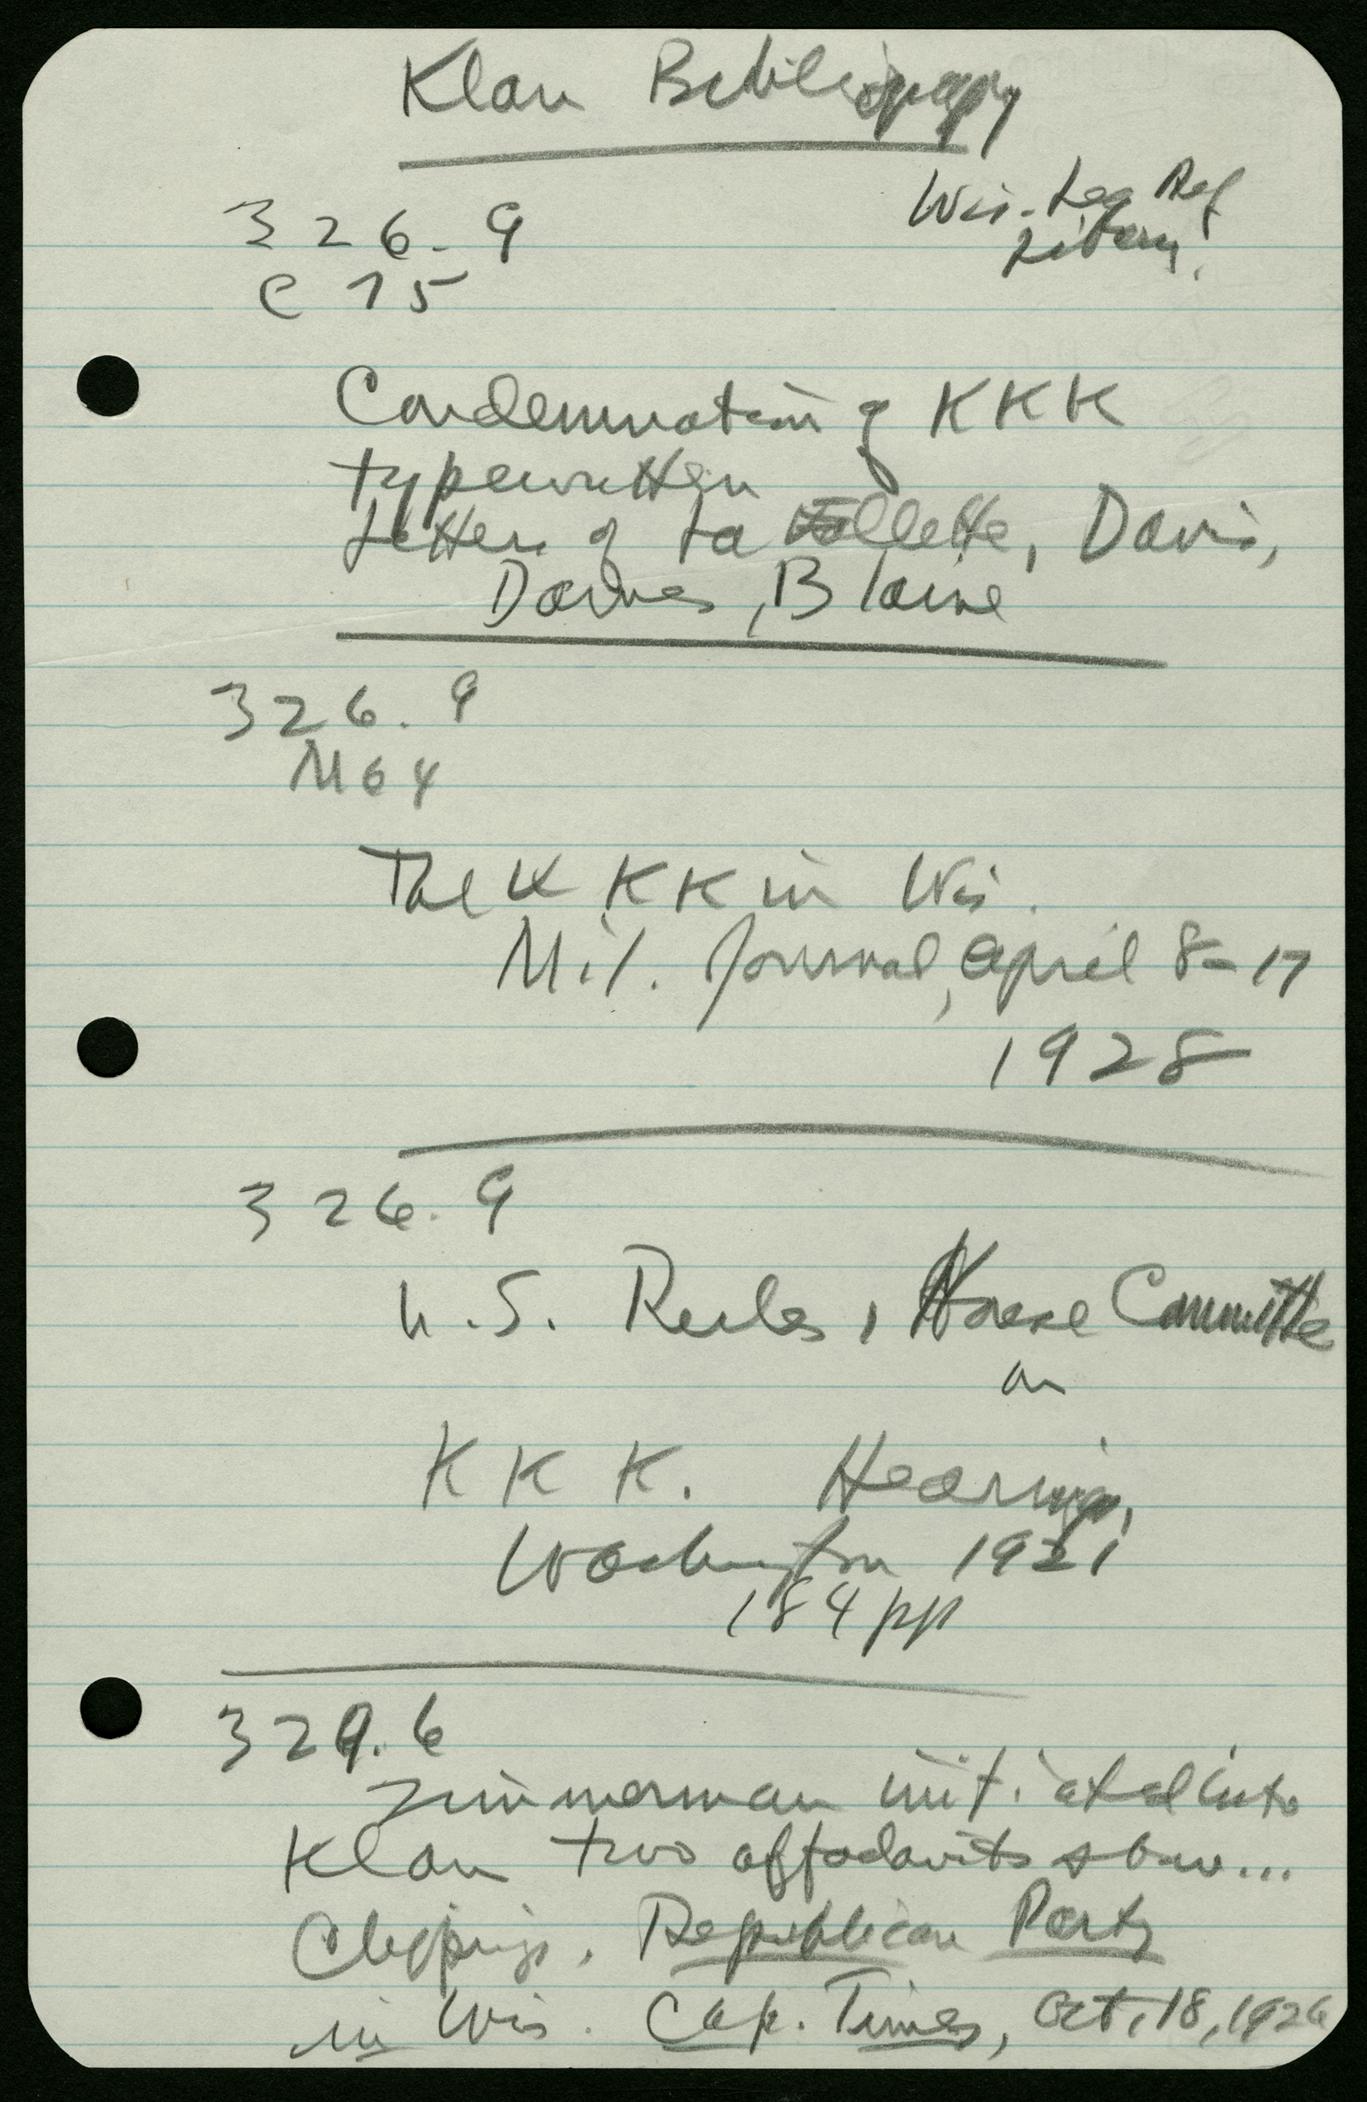 Klan Bibliography
Wis. Leg Ref
Library
326.9
C75
Condemnation of KKK
typewritten
Letters of La Follette, Davis,
Dawes, Blaine
326.9
M64
The KKK in Wis.
Mil. Journal, April 8-17
1928
326.9
U.S. Rules, House Committee
on
KKK. Hearings,
Washington 1921
184 pp
329.6
Zimmerman initiated into
Klan two affadavits show...
Clippings. Republican Party
in Wis. Cap. Times, Oct. 18, 1926